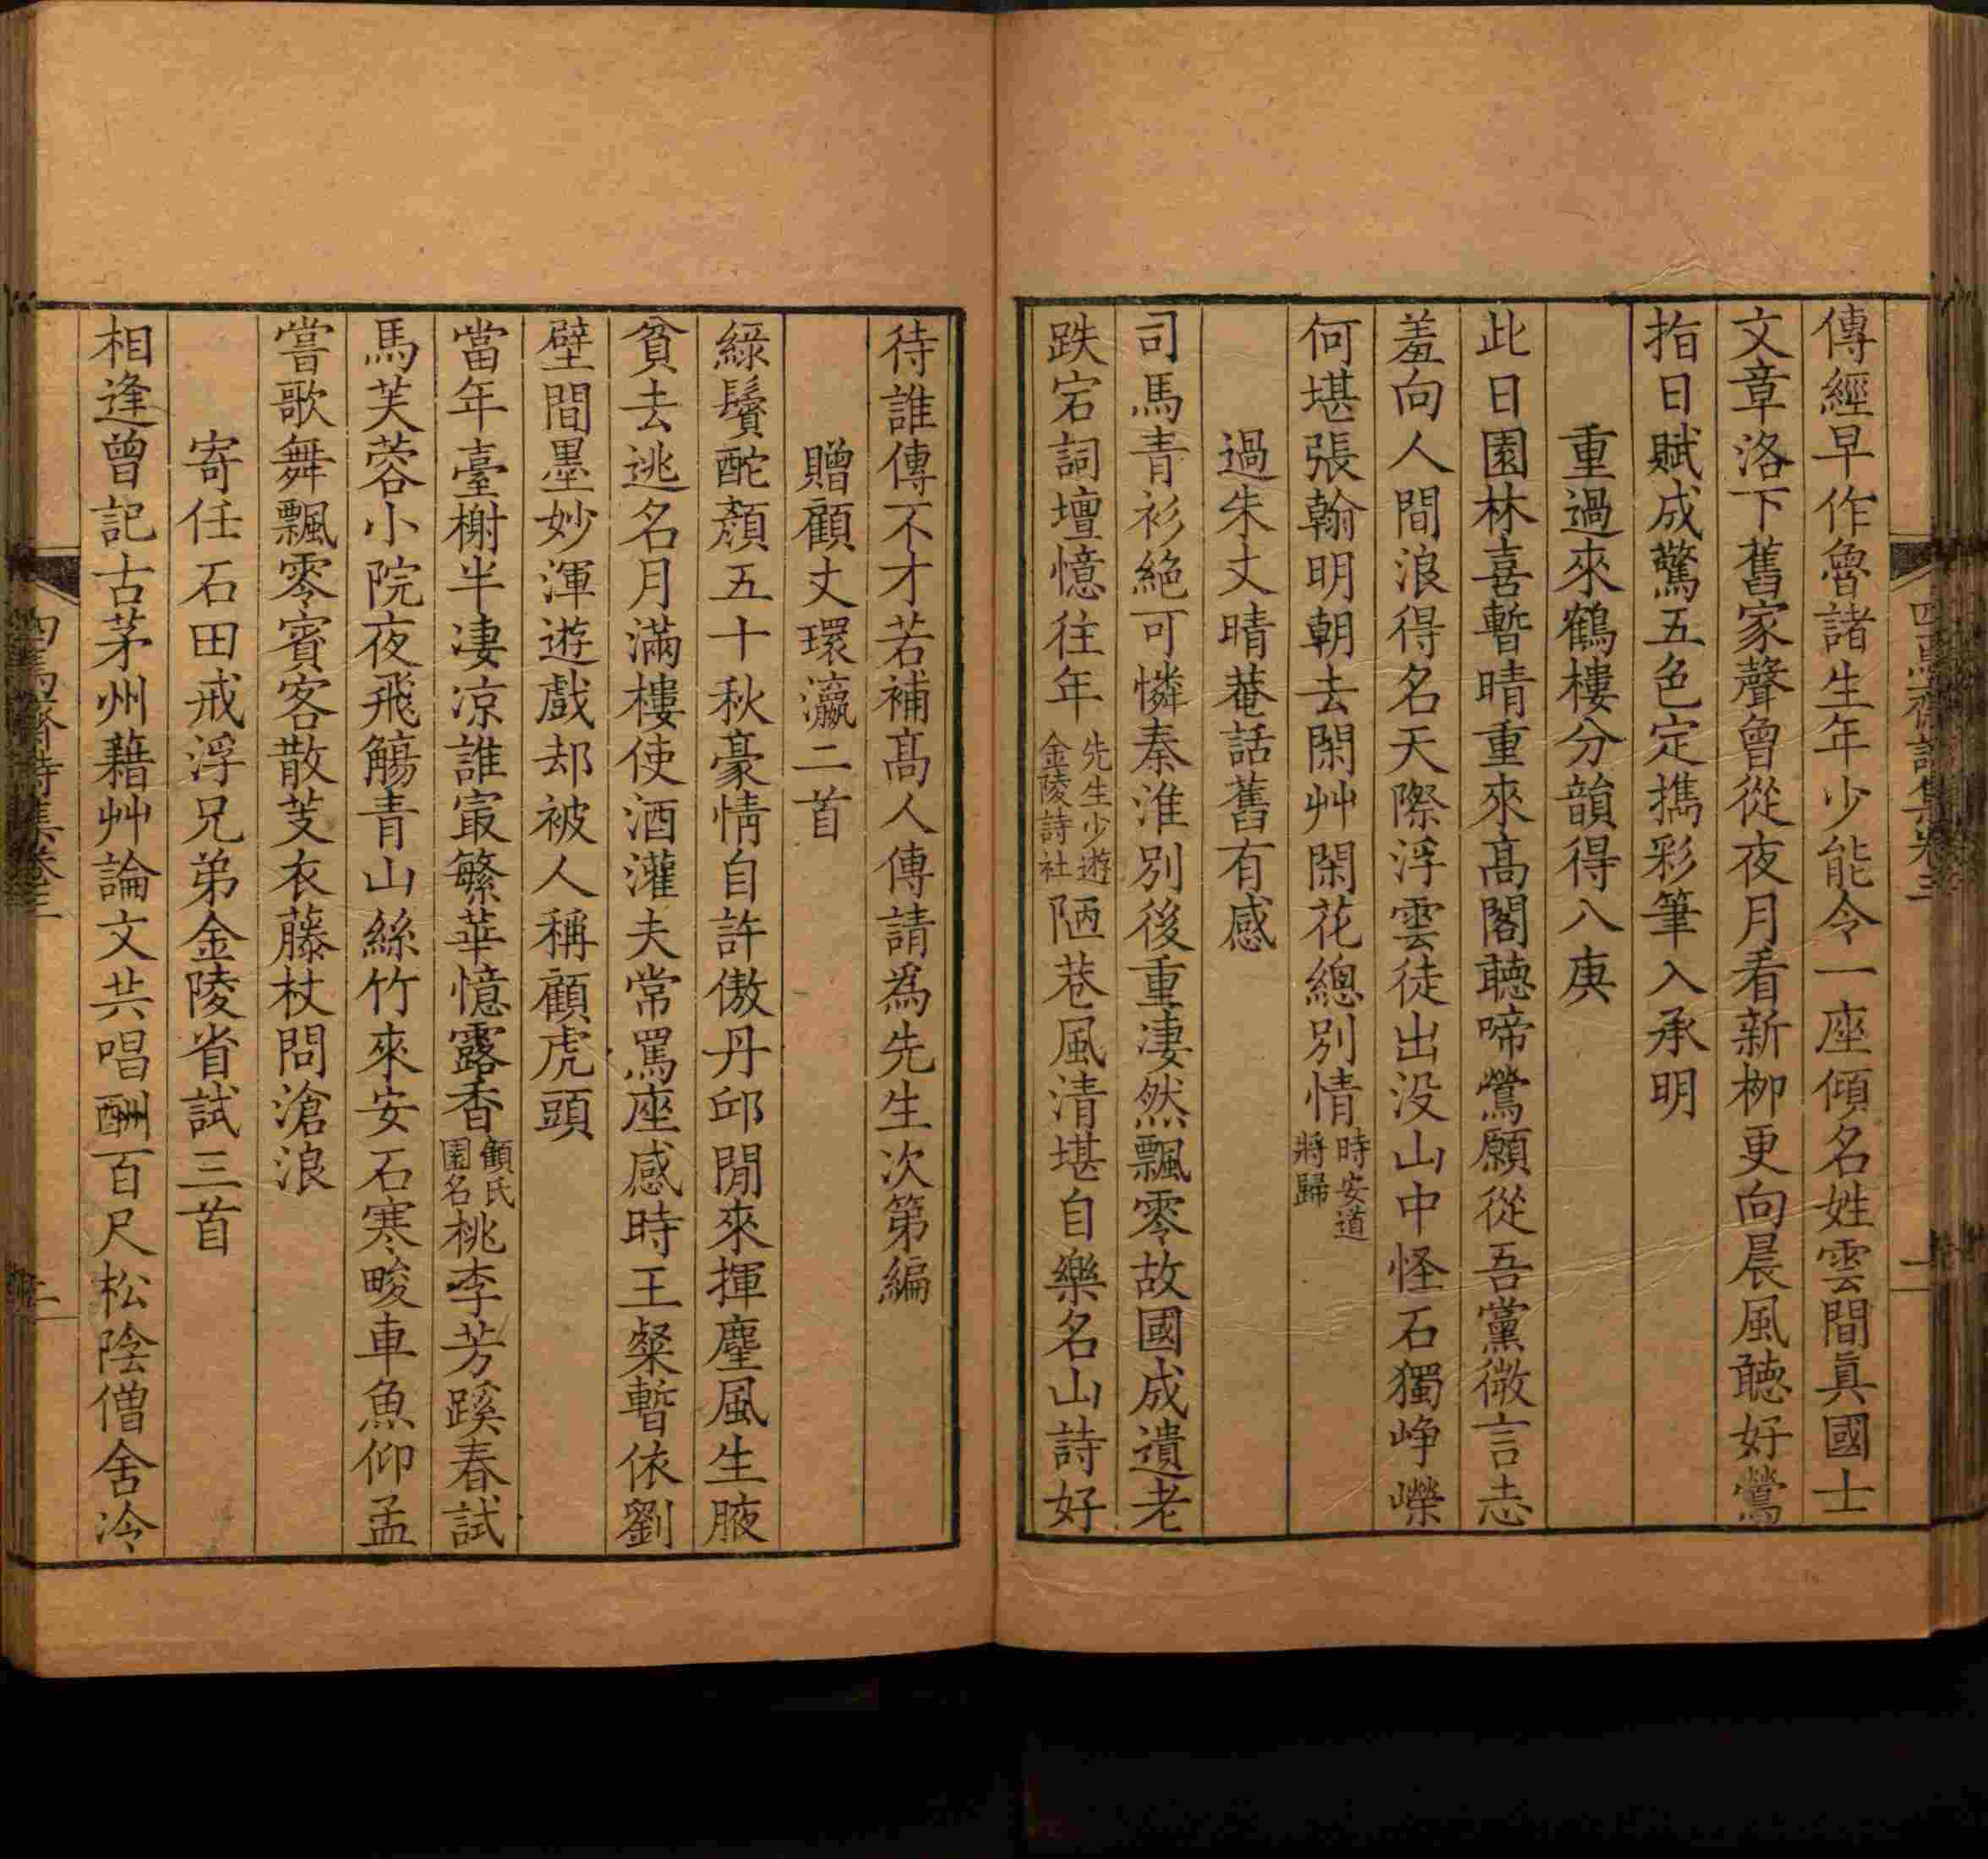 傳經早作魯諸生年少能令一座傾名姓雲間眞國士
文章洛下舊家聲曾從夜月看新柳更向晨風聽好鶯
指日賦成驚五色定攜彩筆入承明
重過來鶴樓分韻得八庚
此日園林喜暫晴重來髙閣聽啼鶯願從吾黨微言志
羞向人間浪得名天際浮雲徒出没山中怪石獨崢嶸
何堪張翰明朝去閑艸閑花總別情時安道將歸
過朱丈晴菴話舊有感
司馬青衫絶可憐秦淮別後重淒然飄零故國成遺老
跌宕詞壇憶往年先生少遊金陵詩社陋巷風清堪自樂名山詩好
待誰傳不才若補髙人傳請爲先生次第編
贈顧丈環瀛二首
綠鬢酡顏五十秋豪情自許傲丹邱閒來揮麈風生腋
貧去逃名月滿樓使酒灌夫常罵座感時王粲暫依劉
壁間墨妙渾遊戲却被人稱顧虎頭
當年臺榭半凄凉誰寂繁華憶露香顧氏園名桃李芳蹊春試
馬芙蓉小院夜飛觴青山絲竹來安石寒畯車魚仰孟
嘗歌舞飄零賓客散芰衣藤杖問滄浪
寄任石田戒浮兄弟金陵省試三首
相逢曾記古茅州藉艸論文共唱酬百尺松陰僧舍冷
四馬齋詩集卷三
一
四馬齋詩集卷三
二